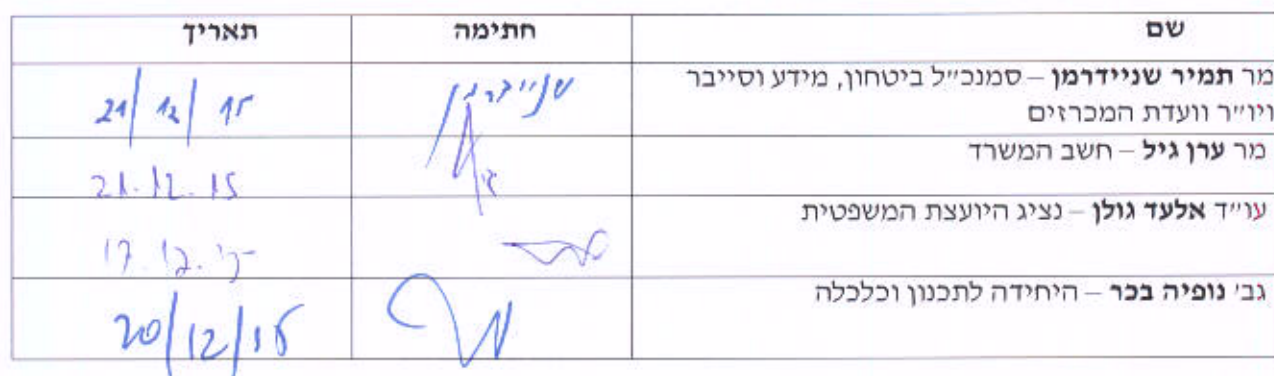 שם חתימה תאריך
מר תמיר שניידרמן – סמנכ״ל ביטחון, מידע וסייבר שניידרמן 21/12/15
ויו״ר וועדת המכרזים
מר ערן גיל – חשב המשרד 21.12.15
עו״ד אלעד גולן – נציג היועצת המשפטית 17.12.15
גבי נופיה בכר – היחידה לתכנון וכלכלה 20/12/15